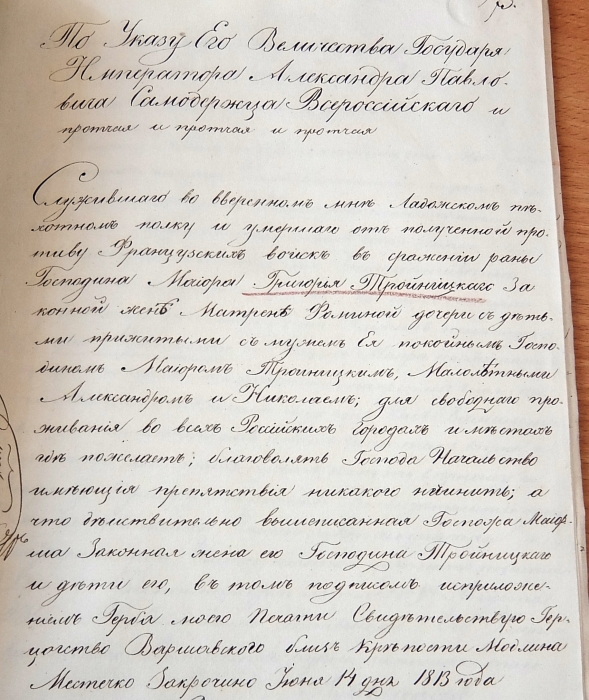 По Указу Его Величества Государя
Императора Александра Павло-
вича Самодержца Всероссійскаго и
протчая и протчая и протчая
Служившаго во вверенномъ мнѣ Ладожскомъ пѣ-
хотномъ полку и умершаго отъ полученной про-
тиву Французскихъ войскъ въ сраженіи раны
Господина Маіора Григорія Тройницкаго за
конной женѣ Матренѣ Фоминой дочери съ дѣть-
ми прижитыми съ мужемъ Ея покойнымъ Госпо-
диномъ Маіоромъ Тройницкимъ, Малолѣтными
Александромъ и Николаемъ; для свободнаго про-
живанія во всехъ Россійскихъ городахъ и мѣстахъ
гдѣ пожелаетъ; благоволятъ Господа Начальство
имѣющія препятствія никакого нечинить; а
что дѣйствительно вышеписанная Госпожа Маіор-
ша Законная жена его Господина Тройницкаго
и дѣти его, въ томъ подписомъ исприложе-
ніемъ Герба моего Печати Свидѣтельствую Гер-
цогство Варшавского близъ Крѣпости Модлина
Местечко Закрочино Іюня 14 дня 1813 года